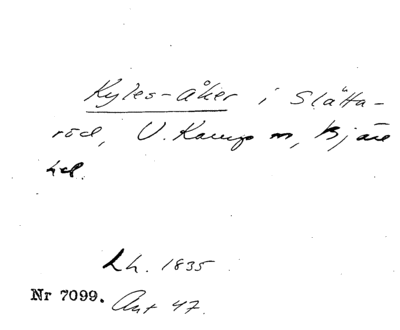 Kyles-åker i Slätta-
röd, V. Karup sn, Bjäre
hd.
Lh. 1835
Nr 7099. Ant 47.